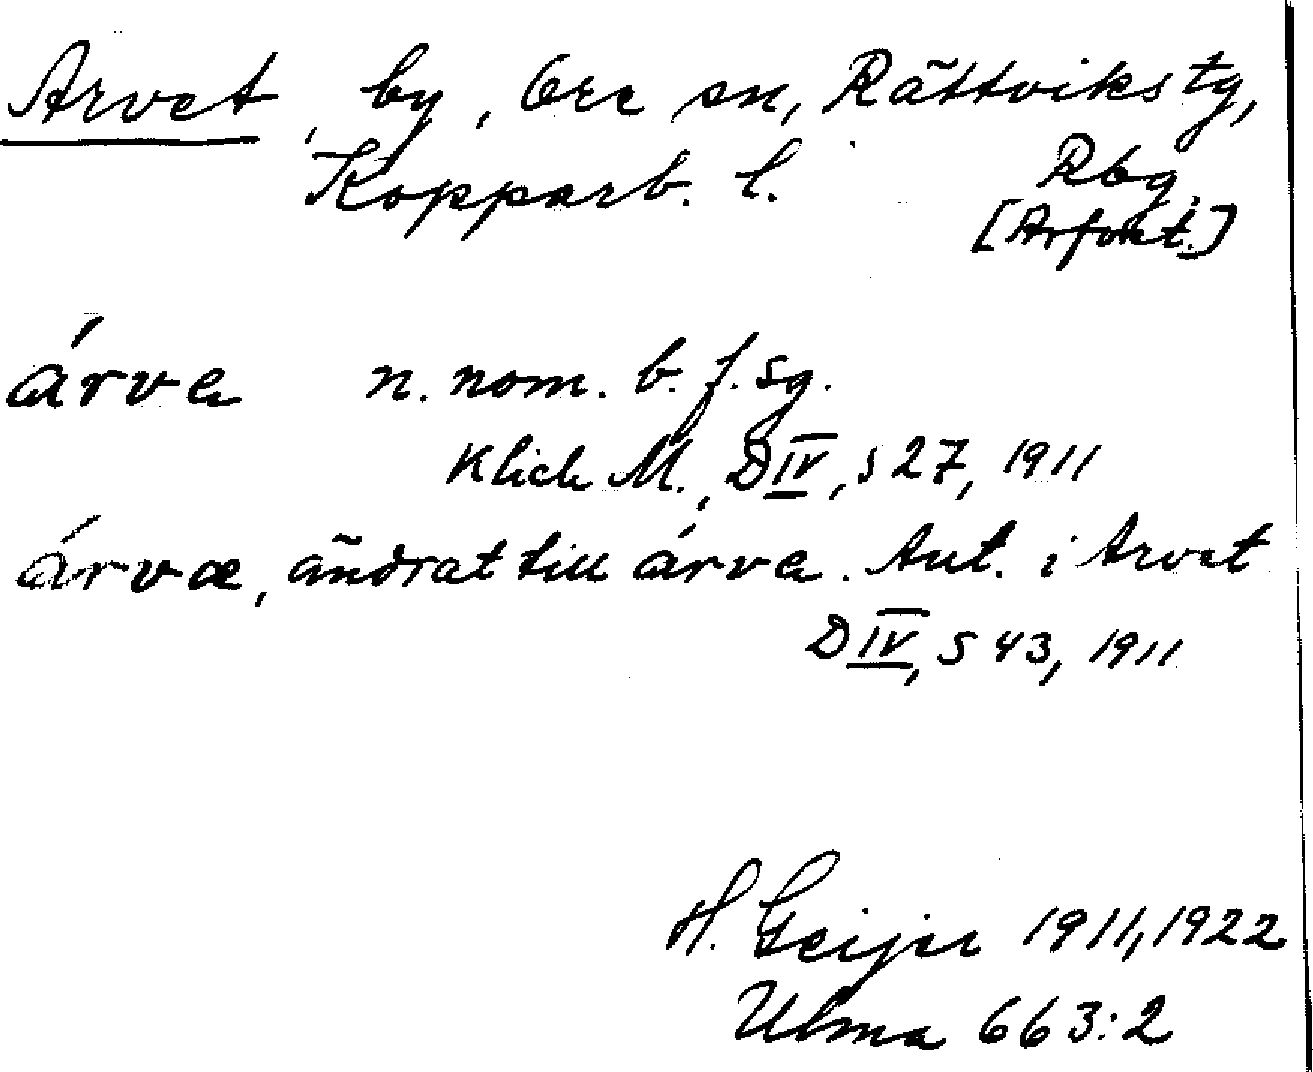 Arvet, by, Ore sn, Rättviks tg,
Kopparb. l. Rbg.
[Arfvet.]
árva n. nom. b. f. sg.
M., D IV, s 27, 1911
árvæ, ändrat till árva. Ant. i Arvet
D IV, s 43, 1911
H. Geijer 1911, 1922
Ulma 663:2